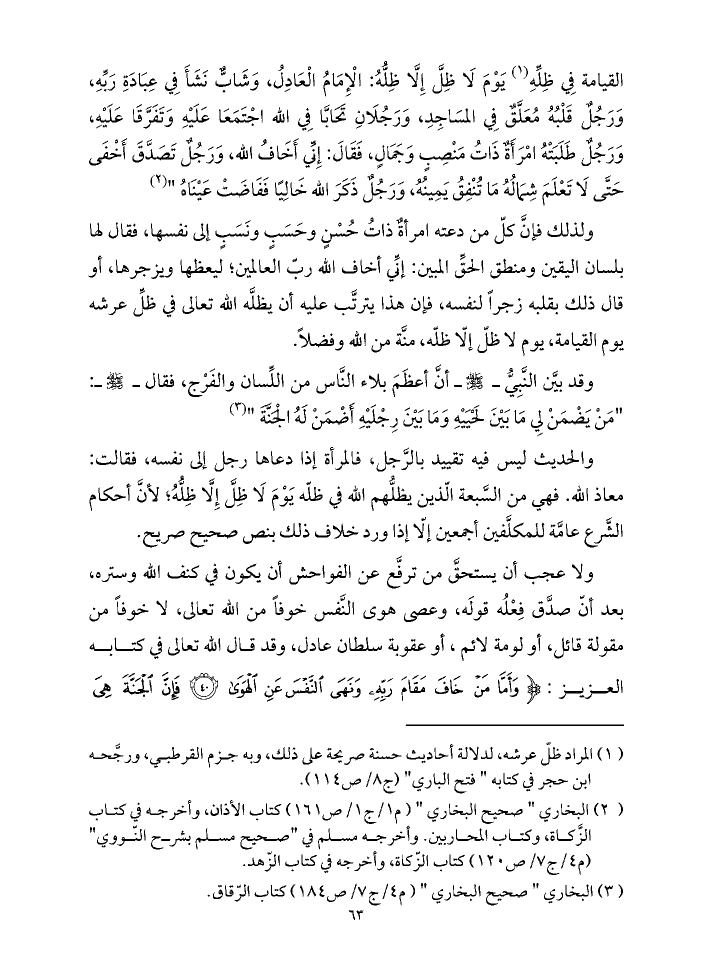 القيامة في ظِلِّهِ(١) يَوْمَ لَا ظِلَّ إِلَّا ظِلُّهُ: الْإِمَامُ الْعَادِلُ، وَشَابٌّ نَشَأَ فِي عِبَادَةِ رَبِّهِ،
وَرَجُلٌ قَلْبُهُ مُعَلَّقٌ فِي المَسَاجِدِ، وَرَجُلَانِ تَحَابَّا فِي الله اجْتَمَعَا عَلَيْهِ وَتَفَرَّقَا عَلَيْهِ،
وَرَجُلٌ طَلَبَتْهُ امْرَأَةٌ ذَاتُ مَنْصِبٍ وَجَمَالٍ، فَقَالَ: إِنِّي أَخَافُ الله، وَرَجُلٌ تَصَدَّقَ أَخْفَى
حَتَّى لَا تَعْلَمَ شِمَالُهُ مَا تُنْفِقُ يَمِينُهُ، وَرَجُلٌ ذَكَرَ الله خَالِيًا فَفَاضَتْ عَيْنَاهُ "(٢)
ولذلك فإنَّ كلّ من دعته امرأةٌ ذاتُ حُسْنٍ وحَسَبٍ ونَسَبٍ إلى نفسها، فقال لها
بلسان اليقين ومنطق الحقِّ المبين: إنِّي أخاف الله ربّ العالمين؛ ليعظها ويزجرها، أو
قال ذلك بقلبه زجراً لنفسه، فإن هذا يترتَّب عليه أن يظلَّه الله تعالى في ظلِّ عرشه
يوم القيامة، يوم لا ظلّ إلّا ظلّه، منَّة من الله وفضلاً.
وقد بيَّن النَّبِيُّ ـ ﷺ ـ أنَّ أعظَمَ بلاء النَّاس من اللِّسان والفَرْج، فقال ـ ﷺ ـ:
"مَنْ يَضْمَنْ لِي مَا بَيْنَ لَحْيَيْهِ وَمَا بَيْنَ رِجْلَيْهِ أَضْمَنْ لَهُ الجَنَّةَ "(٣)
والحديث ليس فيه تقييد بالرَّجل، فالمرأة إذا دعاها رجل إلى نفسه، فقالت:
معاذ الله. فهي من السَّبعة الّذين يظلُّهم الله في ظلّه يَوْمَ لَا ظِلَّ إِلَّا ظِلُّهُ؛ لأنَّ أحكام
الشَّرع عامَّة للمكلَّفين أجمعين إلّا إذا ورد خلاف ذلك بنص صحيح صريح.
ولا عجب أن يستحقَّ من ترفَّع عن الفواحش أن يكون في كنف الله وستره،
بعد أنّ صدَّق فِعْلُه قولَه، وعصى هوى النَّفس خوفاً من الله تعالى، لا خوفاً من
مقولة قائل، أو لومة لائم ، أو عقوبة سلطان عادل، وقد قـال الله تعالى في كتـــابـــه
العـــزيـــز : ﴿ وَأَمَّا مَنْ خَافَ مَقَامَ رَبِّهِۦ وَنَهَى ٱلنَّفْسَ عَنِ ٱلْهَوَىٰ ﴿٤٠﴾ فَإِنَّ ٱلْجَنَّةَ هِىَ
( ١ ) المراد ظلّ عرشه، لدلالة أحاديث حسنة صريحة على ذلك، وبه جـزم القرطبـي، ورجَّحـه
ابن حجر في كتابه " فتح الباري" (ج٨/ ص١١٤).
( ٢ ) البخاري " صحيح البخاري " ( م١/ ج١/ ص١٦١) كتاب الأذان، وأخرجـه في كتـاب
الزَّكـاة، وكتـاب المحـاربين. وأخرجـه مسلـم في "صـحيح مسلـم بشرـح النّـووي"
(م٤/ ج٧/ ص١٢٠) كتاب الزّكاة، وأخرجه في كتاب الزّهد.
( ٣ ) البخاري " صحيح البخاري " ( م٤/ ج٧/ ص١٨٤) كتاب الرّقاق.
٦٣